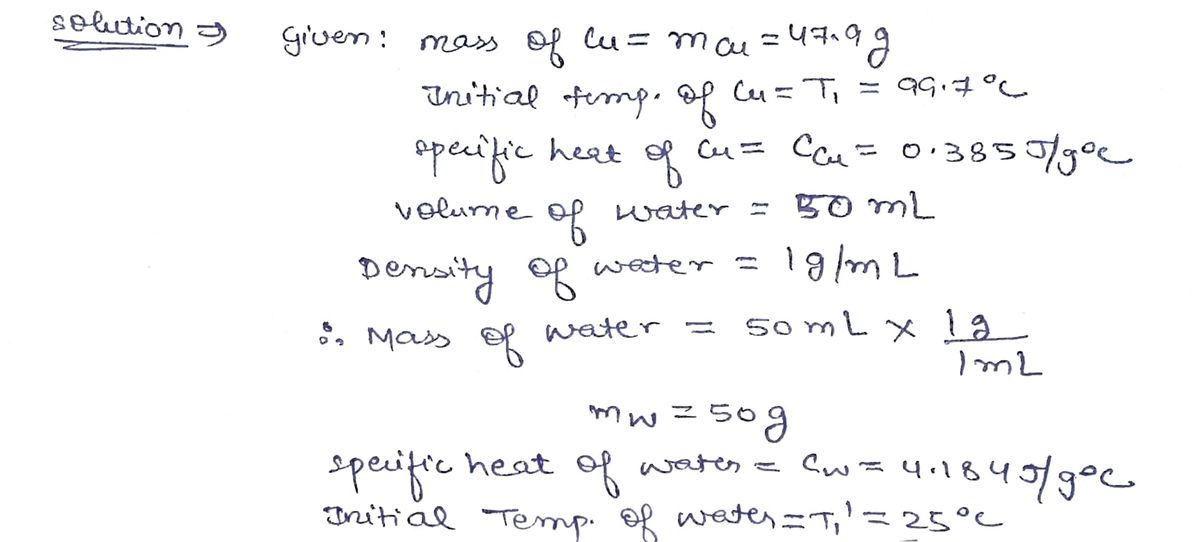 solution ⇒ Given: mass of Cu = mCu = 47.9 g
Initial temp. of Cu = T₁ = 99.7 °C
specific heat of Cu = CCu = 0.385 J/g°C
volume of water = 50 mL
Density of water = 1g/mL
∴ Mass of water = 50 mL × 1g
1mL
mw = 50g
specific heat of water = Cw = 4.184 J/g°C
Initial Temp. of water = T₁' = 25°C